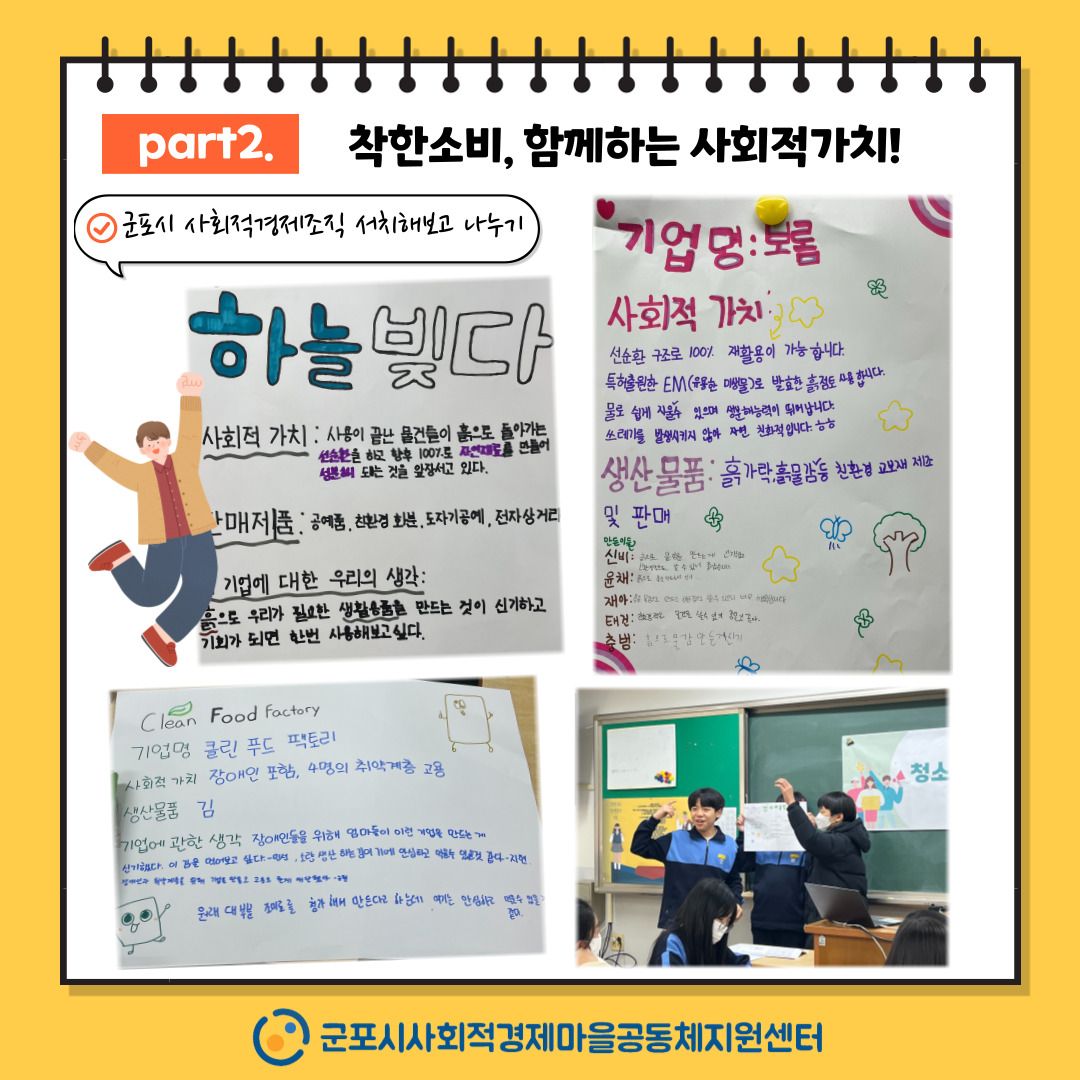 part2.
착한소비, 함께하는 사회적가치!
군포시 사회적경제조직 서치해보고 나누기
하늘빛다
사회적 가치 : 사용이 끝난 물건들이 흙으로 돌아가는
선순환을 하고 향후 100%로 자연재료를 만들어
성분이 되는 것을 앞장서고 있다.
판매제품 : 공예품, 친환경 화분, 도자기공예, 전자상거래
기업에 대한 우리의 생각:
흙으로 우리가 필요한 생활용품을 만드는 것이 신기하고
기회가 되면 한번 사용해보고싶다.
기업명 : 보롬
사회적 가치:
선순환 구조로 100% 재활용이 가능합니다.
특허출원한 EM(유용한 미생물)로 발효한 흙점토 사용합니다.
물로 쉽게 지울수 있으며 생분해능력이 뛰어납니다.
쓰레기를 발생시키지 않아 자연 친화적입니다. ㅎㅎ
생산물품: 흙가락, 흙물감등 친환경 교보재 제조
및 판매
만든이들
신비:
윤채:
재아:
태건:
충범: 흙으로 물감 만든게 신기
Clean Food Factory
기업명 클린 푸드 팩토리
사회적 가치 장애인 포함, 4명의 취약계층 고용
생산물품 김
기업에 관한 생각 장애인들을 위해 엄마들이 이런 기업을 만드는게
신기했다. 이 김을 먹어보고 싶다.
원래 대부분 조미료를 첨가해서 만든다고 하는데 여기는 안심하고 먹을수 있을거
같다.
청소
군포시사회적경제마을공동체지원센터